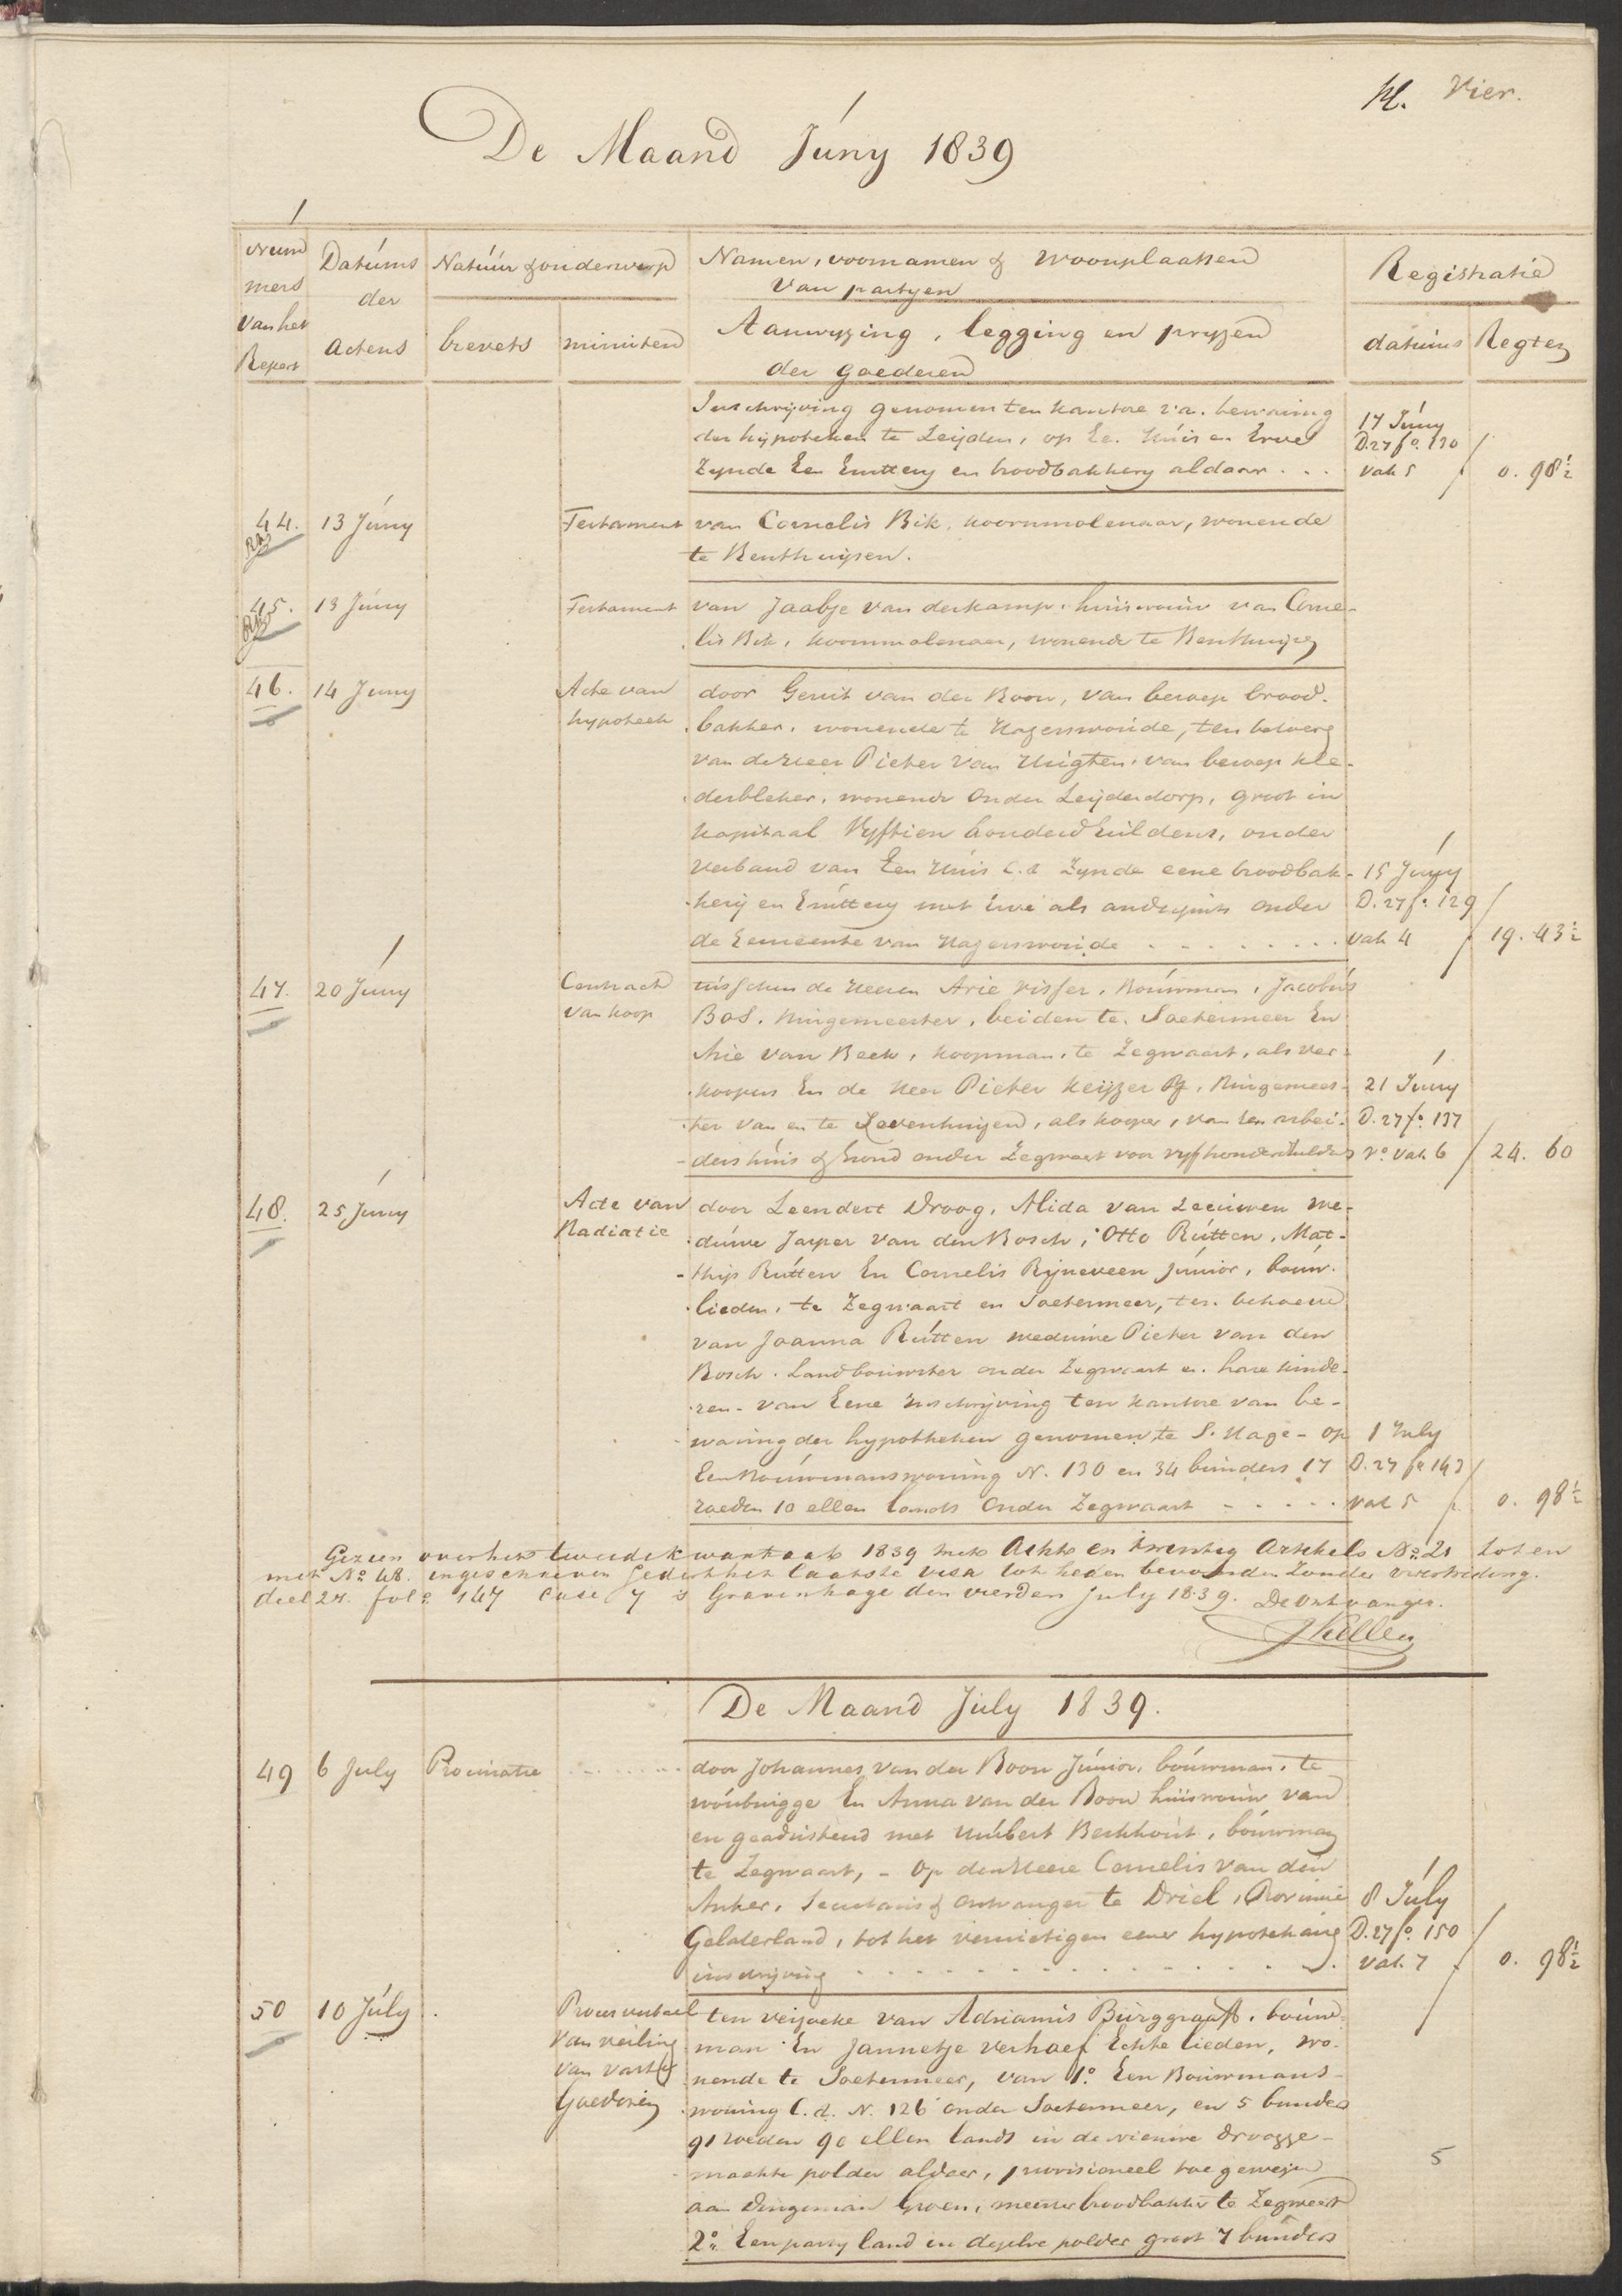 Vier.
De Maand Júny 1839
Num
mers
van het
Repert
Datúms
der
Actens
Natúúr & onderwerp
brevets
minúten
Namen, voornamen & woonplaatsen
van partyen
Aanwyzing, legging en pryzen
der goederen
Registratie
datúms
Regten
Inschrijving genomen ten kantore van bewaring
der hypotheken te Leijden, op Een Húis en Erve
Zynde Een Gruttery en broodbakkery aldaar . . .
17 Júny
D. 27 fo. 130
vak 5
0. 98½
44. 13 Júny Testament van Cornelis Bik, koornmolenaar, wonende
te Benthuijsen.
45. 13 Júny Testament van Jaabje van der kamp, huisvrouw van Corne-
lis Bik, koornmolenaar, wonende te Benthuijzen
46. 14 Juny Acte van
hypotheek
door Gerrit van der Boon, van beroep brood-
bakker, wonende te Hazerswoúde, ten behoeve
van de Heer Pieter van Huigten, van beroep kle-
derbleker, wonende onder Leijderdorp, groot in
kapitaal Vyftien honderd Guldens, onder
verband van Een Húis c.s Zynde eene broodbak-
kerij en Grúttery met Erve als anderzints onder
de Gemeente van Hazerswoúde . . . . . . . .
15 Juny
D. 27 fo. 129
vak 4
19. 43½
47. 20 Júny Contract
van koop
tússchen de Heeren Arie Visser, Boúwman, Jacobús
Bos, Burgemeester, beiden te Soetermeer En
Arie van Beek, koopman, te Zegwaart, als ver-
koopers En de Heer Pieter Keijzer Pz, Burgemees-
ter van en te Zevenhuijzen, als kooper, van een arbei-
ders húis & Grond onder Zegwaart voor vyfhonderd Guldens
21 Júny
D. 27 fo. 137
vo. vak 6
24. 60
48. 25 Júny Acte van
Radiatie
door Leendert Droog, Alida van Leeuwen we-
dúwe Jasper van den Bosch, Otto Rútten, Mat-
thijs Rútten En Cornelis Rijneveen Júnior, boúw-
lieden, te Zegwaart en Soetermeer, ten behoeve
van Joanna Rútten weduwe Pieter van den
Bosch, Landbouwster onder Zegwaart en hare kinde-
ren - van Eene Inschrijving ten kantore van be-
waring der hypotheken genomen te S. Hage - op
Een Boúwmanswoning N. 130 en 34 bunders 17
roeden 10 ellen lands onder Zegwaart - . . . .
1 July
D. 27 fo 143
vak 5
0. 98½
Gezien over het tweede kwartaal 1839 met Acht en twintig Artikels No. 21 tot en
met No 48. ingeschreven sedert het laatste visa tot heden bevonden zonder overtreding.
deel 24. folo. 147 case 7 's Gravenhage den vierden July 1839. De Ontvanger.
De Maand Júly 1839.
49 6 July Procuratie . . . . . . . door Johannes van der Boon Júnior, boúwman, te
woúbrúgge En Anna van der Boon huisvrouw van
en geadsisteerd met Húibert Berkhoút, boúwman
te Zegwaart, - op den Heere Cornelis van den
Anker, Secretaris & ontvanger te Driel, Provincie
Gelderland, tot het vernietigen eener hypothecaire
inschrijving . . . . . . . . . . . . . .
8 Júly
D. 27 fo. 150
vak 7
0. 98½
50 10 Júly . Proces verbaal
van veiling
van vaste
Goederen
ten verzoeke van Adrianus Burggraaff, boúw-
man En Jannetje Verhoef Echte lieden, wo-
nende te Soetermeer, van 1o. Een Boúwmans-
woning c.d. N. 126 onder Soetermeer, en 5 bunders
91 roeden 90 ellen lands in de nieuwe drooge-
maakte polder aldaar, provisioneel toegewezen
aan Dingeman Groen, meester broodbakker te Zegwaart
2o. Een party land in dezelve polder groot 7 bunders
5